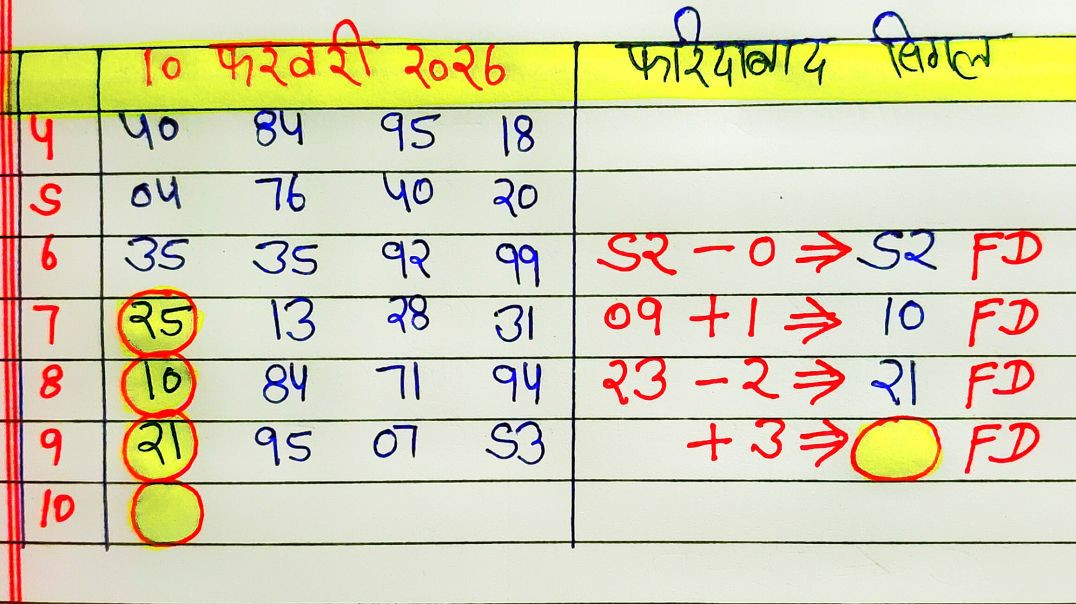 10 फरवरी २०२६ फरिदाबाद सिंगल
4 40 84 95 18
5 04 76 40 20
6 35 35 92 99 52 - 0 ⇒ 52 FD
7 25 13 28 31 09 + 1 ⇒ 10 FD
8 10 84 71 94 23 - 2 ⇒ 21 FD
9 21 95 07 53 + 3 ⇒ FD
10